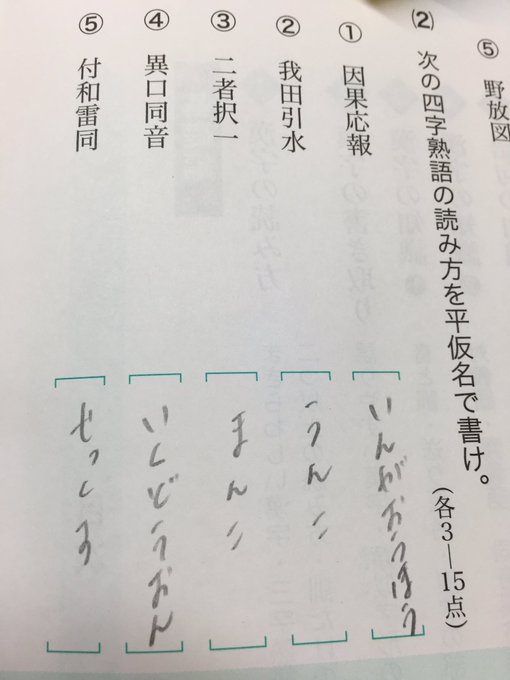 ⑤ 野放図
(2) 次の四字熟語の読み方を平仮名で書け。(各3—15点)
① 因果応報 [いんがおうほう]
② 我田引水 [うんこ]
③ 二者択一 [まんこ]
④ 異口同音 [いくどうおん]
⑤ 付和雷同 [せっくす]